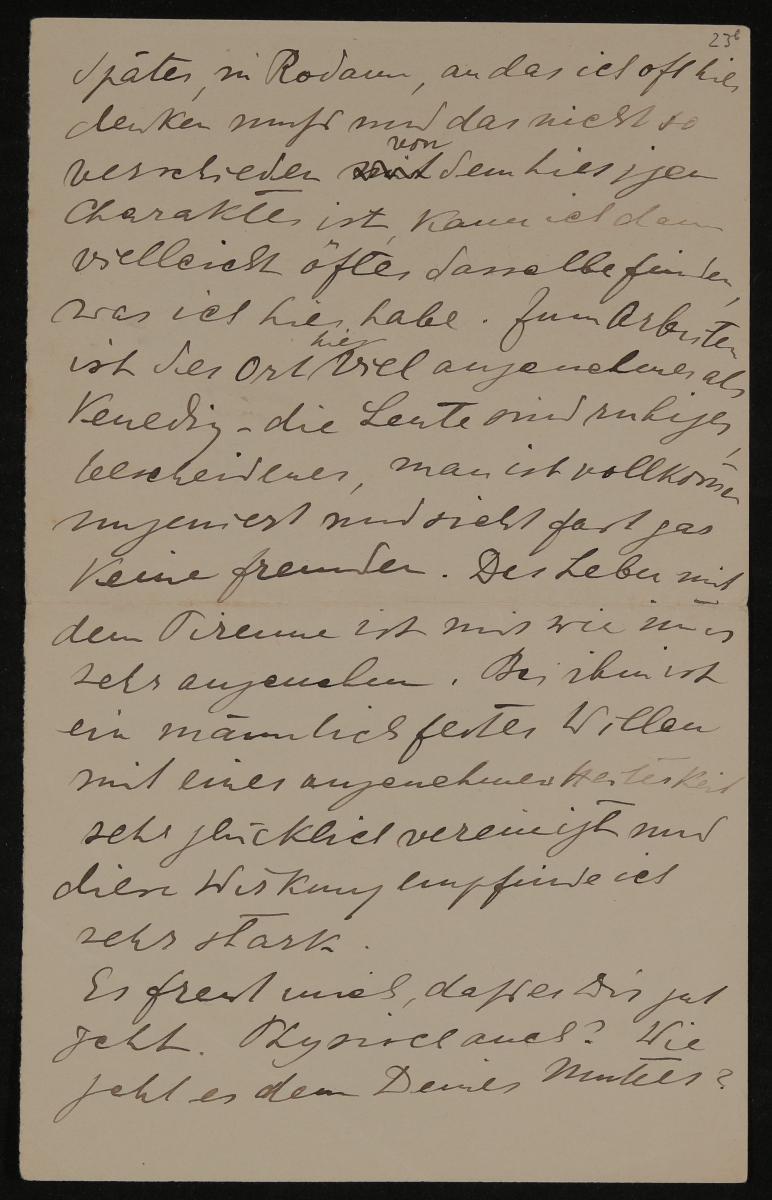 23b
Später, in Rodaun, an das ich oft hier
denken muß und das nicht so
verschieden von dem hiesigen
Charakter ist, kann ich dann
vielleicht öfter dasselbe finden,
was ich hier habe. Zum Arbeiten
ist der Ort hier viel angenehmer als
Venedig – die Leute sind ruhiger,
bescheidener, man ist vollkom̄en
ungeniert und sieht fast gar
keine fremden. Das Leben mit
dem ist mir wie im̄er
sehr angenehm. Bei ihm ist
ein männlich fester Willen
mit einer angenehmen Heiterkeit
sehr glücklich vereinigt und
diese Wirkung empfinde ich
sehr stark.
Es freut mich, daß es Dir gut
geht. Physisch auch? Wie
geht es denn Deiner Mutter?